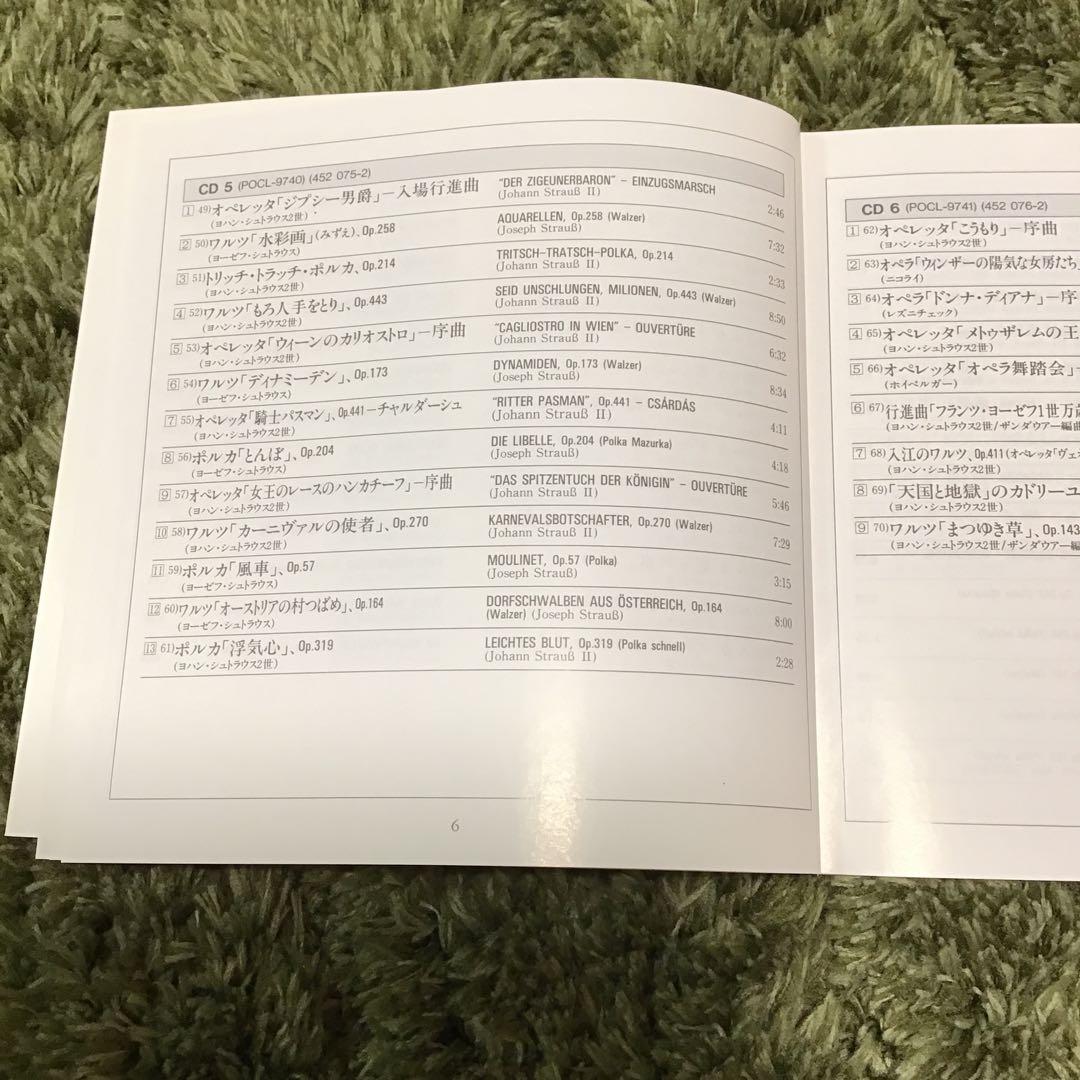 CD 5 (POCL-9740) (452 075-2)
1 49)オペレッタ「ジプシー男爵」−入場行進曲 "DER ZIGEUNERBARON" – EINZUGSMARSCH
(ヨハン・シュトラウス2世) (Johann Strauß II) 2:46
2 50)ワルツ「水彩画」(みずえ)、Op.258 AQUARELLEN, Op.258 (Walzer)
(ヨーゼフ・シュトラウス) (Joseph Strauß) 7:32
3 51)トリッチ・トラッチ・ポルカ、Op.214 TRITSCH–TRATSCH–POLKA, Op.214
(ヨハン・シュトラウス2世) (Johann Strauß II) 2:33
4 52)ワルツ「もろ人手をとり」、Op.443 SEID UNSCHLUNGEN, MILIONEN, Op.443 (Walzer)
(ヨハン・シュトラウス2世) (Johann Strauß II) 8:50
5 53)オペレッタ「ウィーンのカリオストロ」−序曲 "CAGLIOSTRO IN WIEN" – OUVERTÜRE
(ヨハン・シュトラウス2世) (Johann Strauß II) 6:32
6 54)ワルツ「ディナミーデン」、Op.173 DYNAMIDEN, Op.173 (Walzer)
(ヨーゼフ・シュトラウス) (Joseph Strauß) 8:34
7 55)オペレッタ「騎士パスマン」、Op.441−チャルダーシュ "RITTER PASMAN", Op.441 – CSÁRDÁS
(ヨハン・シュトラウス2世) (Johann Strauß II) 4:11
8 56)ポルカ「とんぼ」、Op.204 DIE LIBELLE, Op.204 (Polka Mazurka)
(ヨーゼフ・シュトラウス) (Joseph Strauß) 4:18
9 57)オペレッタ「女王のレースのハンカチーフ」−序曲 "DAS SPITZENTUCH DER KÖNIGIN" – OUVERTÜRE
(ヨハン・シュトラウス2世) (Johann Strauß II) 5:46
10 58)ワルツ「カーニヴァルの使者」、Op.270 KARNEVALSBOTSCHAFTER, Op.270 (Walzer)
(ヨハン・シュトラウス2世) (Johann Strauß II) 7:29
11 59)ポルカ「風車」、Op.57 MOULINET, Op.57 (Polka)
(ヨーゼフ・シュトラウス) (Joseph Strauß) 3:15
12 60)ワルツ「オーストリアの村つばめ」、Op.164 DORFSCHWALBEN AUS ÖSTERREICH, Op.164
(ヨーゼフ・シュトラウス) (Walzer) (Joseph Strauß) 8:00
13 61)ポルカ「浮気心」、Op.319 LEICHTES BLUT, Op.319 (Polka schnell)
(ヨハン・シュトラウス2世) (Johann Strauß II) 2:28
6
CD 6 (POCL-9741) (452 076-2)
1 62)オペレッタ「こうもり」−序曲
(ヨハン・シュトラウス2世)
2 63)オペラ「ウィンザーの陽気な女房たち」
(ニコライ)
3 64)オペラ「ドンナ・ディアナ」−序
(レズニチェック)
4 65)オペレッタ「メトゥザレムの王
(ヨハン・シュトラウス2世)
5 66)オペレッタ「オペラ舞踏会」−
(ホイベルガー)
6 67)行進曲「フランツ・ヨーゼフ1世万歳
(ヨハン・シュトラウス2世/ザンダウアー編曲
7 68)入江のワルツ、Op.411(オペレッタ「ヴェネ
(ヨハン・シュトラウス2世)
8 69)「天国と地獄」のカドリーユ
(ヨハン・シュトラウス2世)
9 70)ワルツ「まつゆき草」、Op.143
(ヨハン・シュトラウス2世/ザンダウアー編